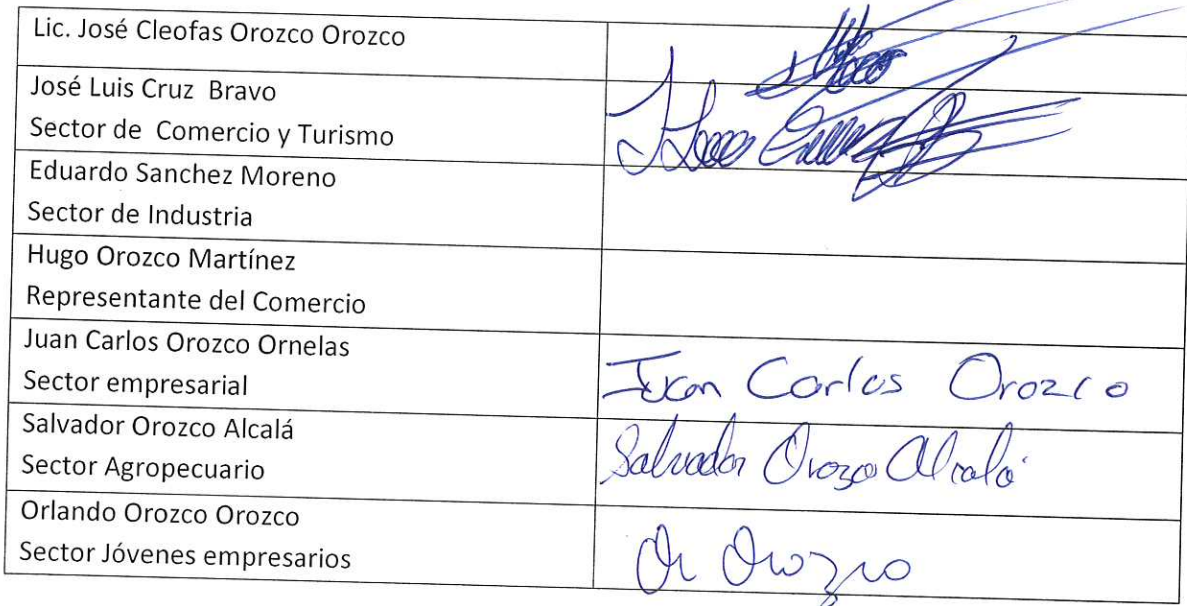 Lic. José Cleofas Orozco Orozco
José Luis Cruz Bravo
Sector de Comercio y Turismo
Eduardo Sanchez Moreno
Sector de Industria
Hugo Orozco Martínez
Representante del Comercio
Juan Carlos Orozco Ornelas
Sector empresarial
Juan Carlos Orozco
Salvador Orozco Alcalá
Sector Agropecuario
Salvador Orozco Alcalá
Orlando Orozco Orozco
Sector Jóvenes empresarios
Or Orozco